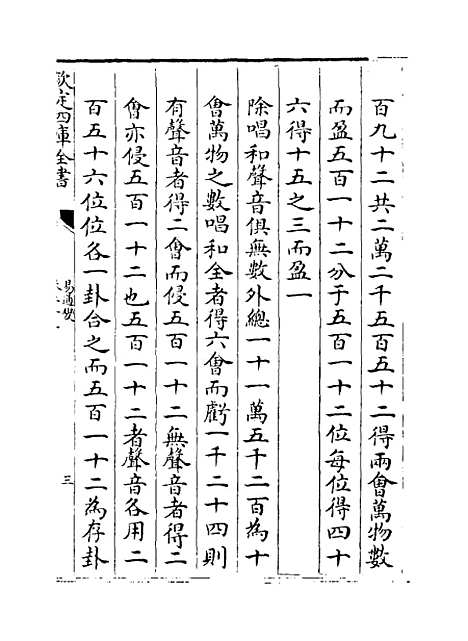 百九十二共二萬二千五百五十二得兩會萬物數
而盈五百一十二分于五百一十二位每位得四十
六得十五之三而盈一
除唱和聲音俱無數外總一十一萬五千二百為十
會萬物之數唱和全者得六會而虧一千二十四則
有聲音者得二會而侵五百一十二無聲音者得二
會亦侵五百一十二也五百一十二者聲音各用二
百五十六位位各一卦合之而五百一十二為存卦
欽定四庫全書
易通變
三